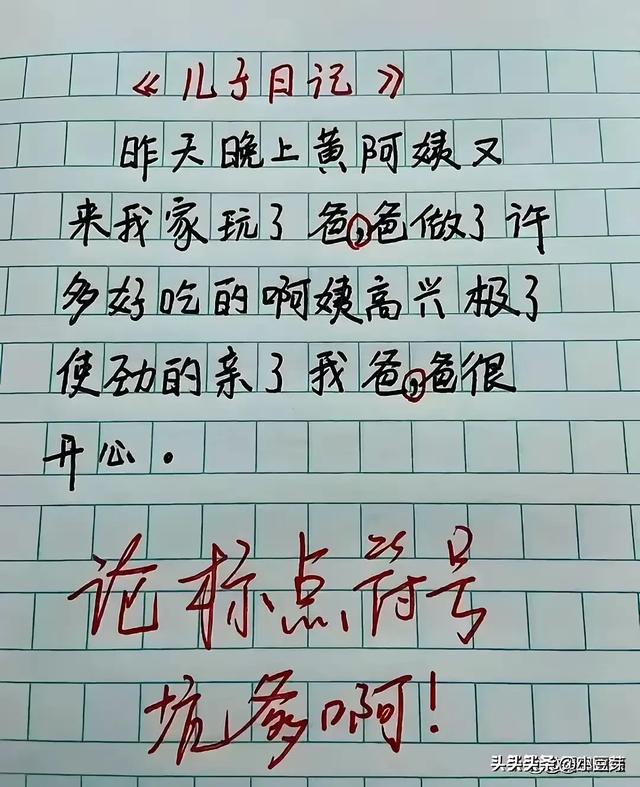 《儿子日记》
昨天晚上黄阿姨又
来我家玩了爸，爸做了许
多好吃的啊姨高兴极了
使劲的亲了我爸，爸很
开心。
论标点符号
坑爹啊！